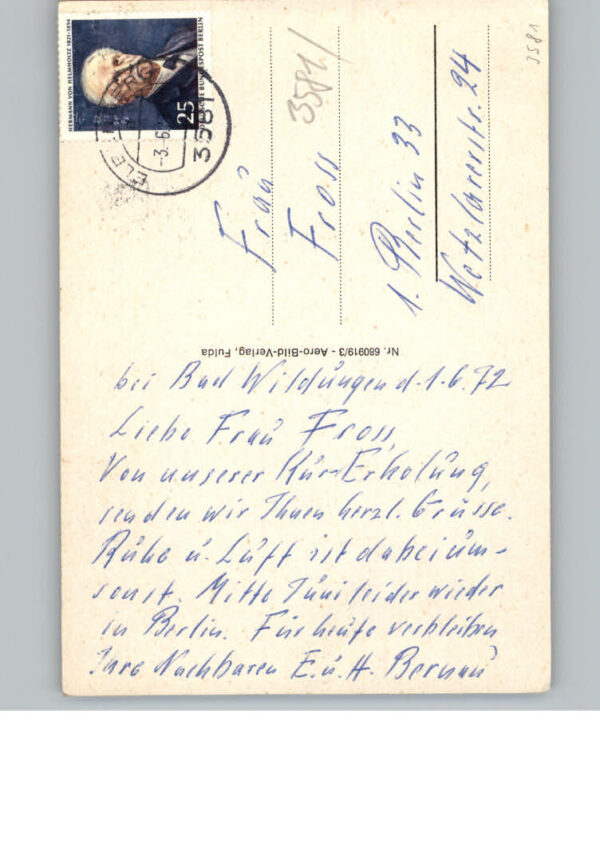 HERMANN VON HELMHOLTZ 1821-1894
25
DEUTSCHE BUNDESPOST BERLIN
3581
-3.6
3581/
3581
Frau
Fross
1. Berlin 33
Wetzlarerstr. 24
Nr. 680919/3 - Aero-Bild-Verlag, Fulda
bei Bad Wildungen d. 1.6.72
Liebe Frau Fross,
Von unserer Kur-Erholung,
senden wir Ihnen herzl. Grüsse.
Ruhe u. Luft ist dabei um-
sonst. Mitte Juni leider wieder
in Berlin. Für heute verbleiben
Ihre Nachbaren E. u. H. Bernau